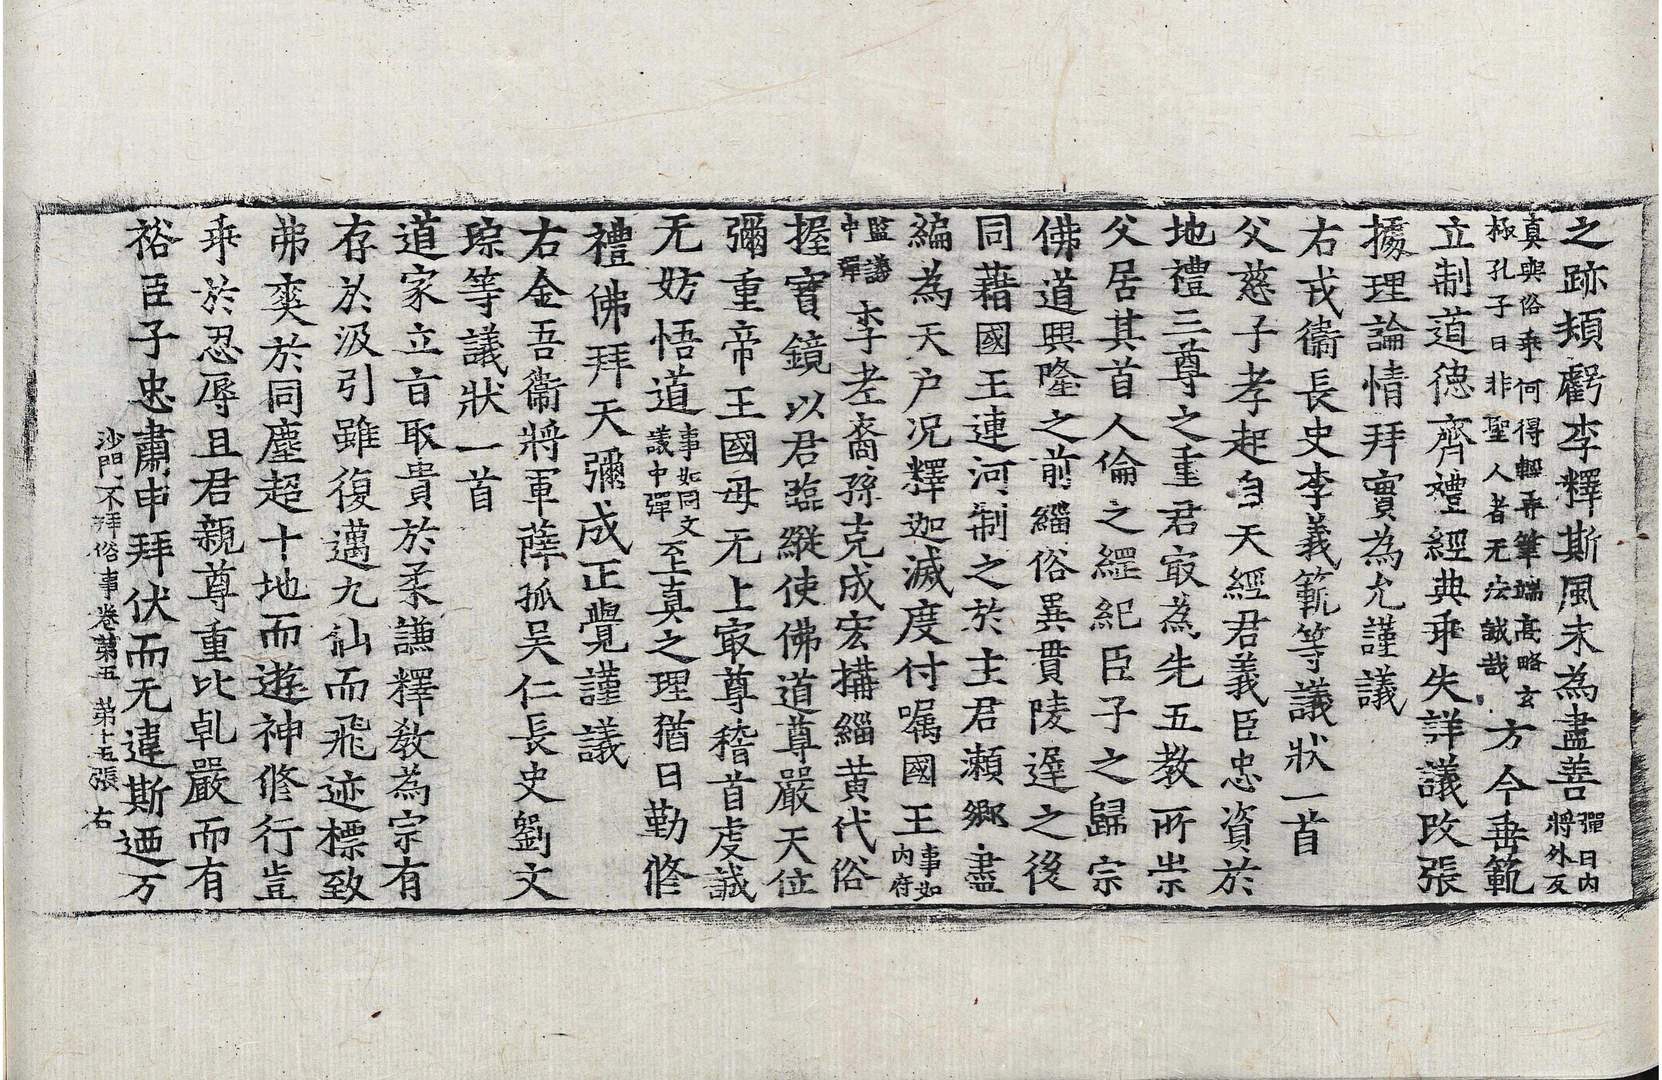 之跡頓虧李釋斯風未為盡善彈曰內將外反
真與俗乖何得輕弄筆端高略玄極孔子曰非聖人者无法誠哉方今垂範
立制道德齊禮經典乖失詳議改張
據理論情拜實為允謹議
右戎衛長史李義範等議狀一首
父慈子孝起自天經君義臣忠資於
地禮三尊之重君冣為先五教所崇
父居其首人倫之經紀臣子之歸宗
佛道興隆之前緇俗異貫陵遲之後
同藉國王連河制之於主君瀨鄉盡
編為天户况釋迦滅度付囑國王事如內府
監議中彈李老裔孫克成宏搆緇黄代俗
握寶鏡以君臨縱使佛道尊嚴天位
彌重帝王國母无上冣尊稽首虔誠
无妨悟道事如同文議中彈至真之理猶曰勤修
禮佛拜天彌成正覺謹議
右金吾衛將軍薛孤吴仁長史劉文
琮等議狀一首
道家立言取貴於柔謙釋教為宗有
存於汲引雖復邁九仙而飛迹標致
弗爽於同塵超十地而遊神修行豈
乖於忍辱且君親尊重比乹嚴而有
裕臣子忠肅申拜伏而无違斯迺万
沙門不拜俗事卷第五 第十五張 右